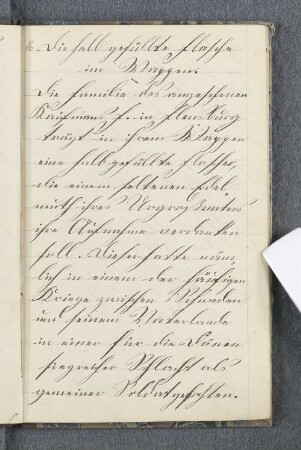 16. Die halb gefüllte Flasche
im Wappen.
Die Familie des angesehenen
Kaufmans J. in Flensburg
trägt in ihrem Wappen
eine halbgefüllte Flasche,
die einem seltenen Edel-
muth ihres Urgroß
ihre Aufnahme verdanken
soll. Dieser hatte näm-
lich in einem der häufigen
Kriege zwischen Schweden
und seinem Vaterlande
in einer für die Dänen
siegreicher Schlacht als
gemeiner Soldat gefochten.